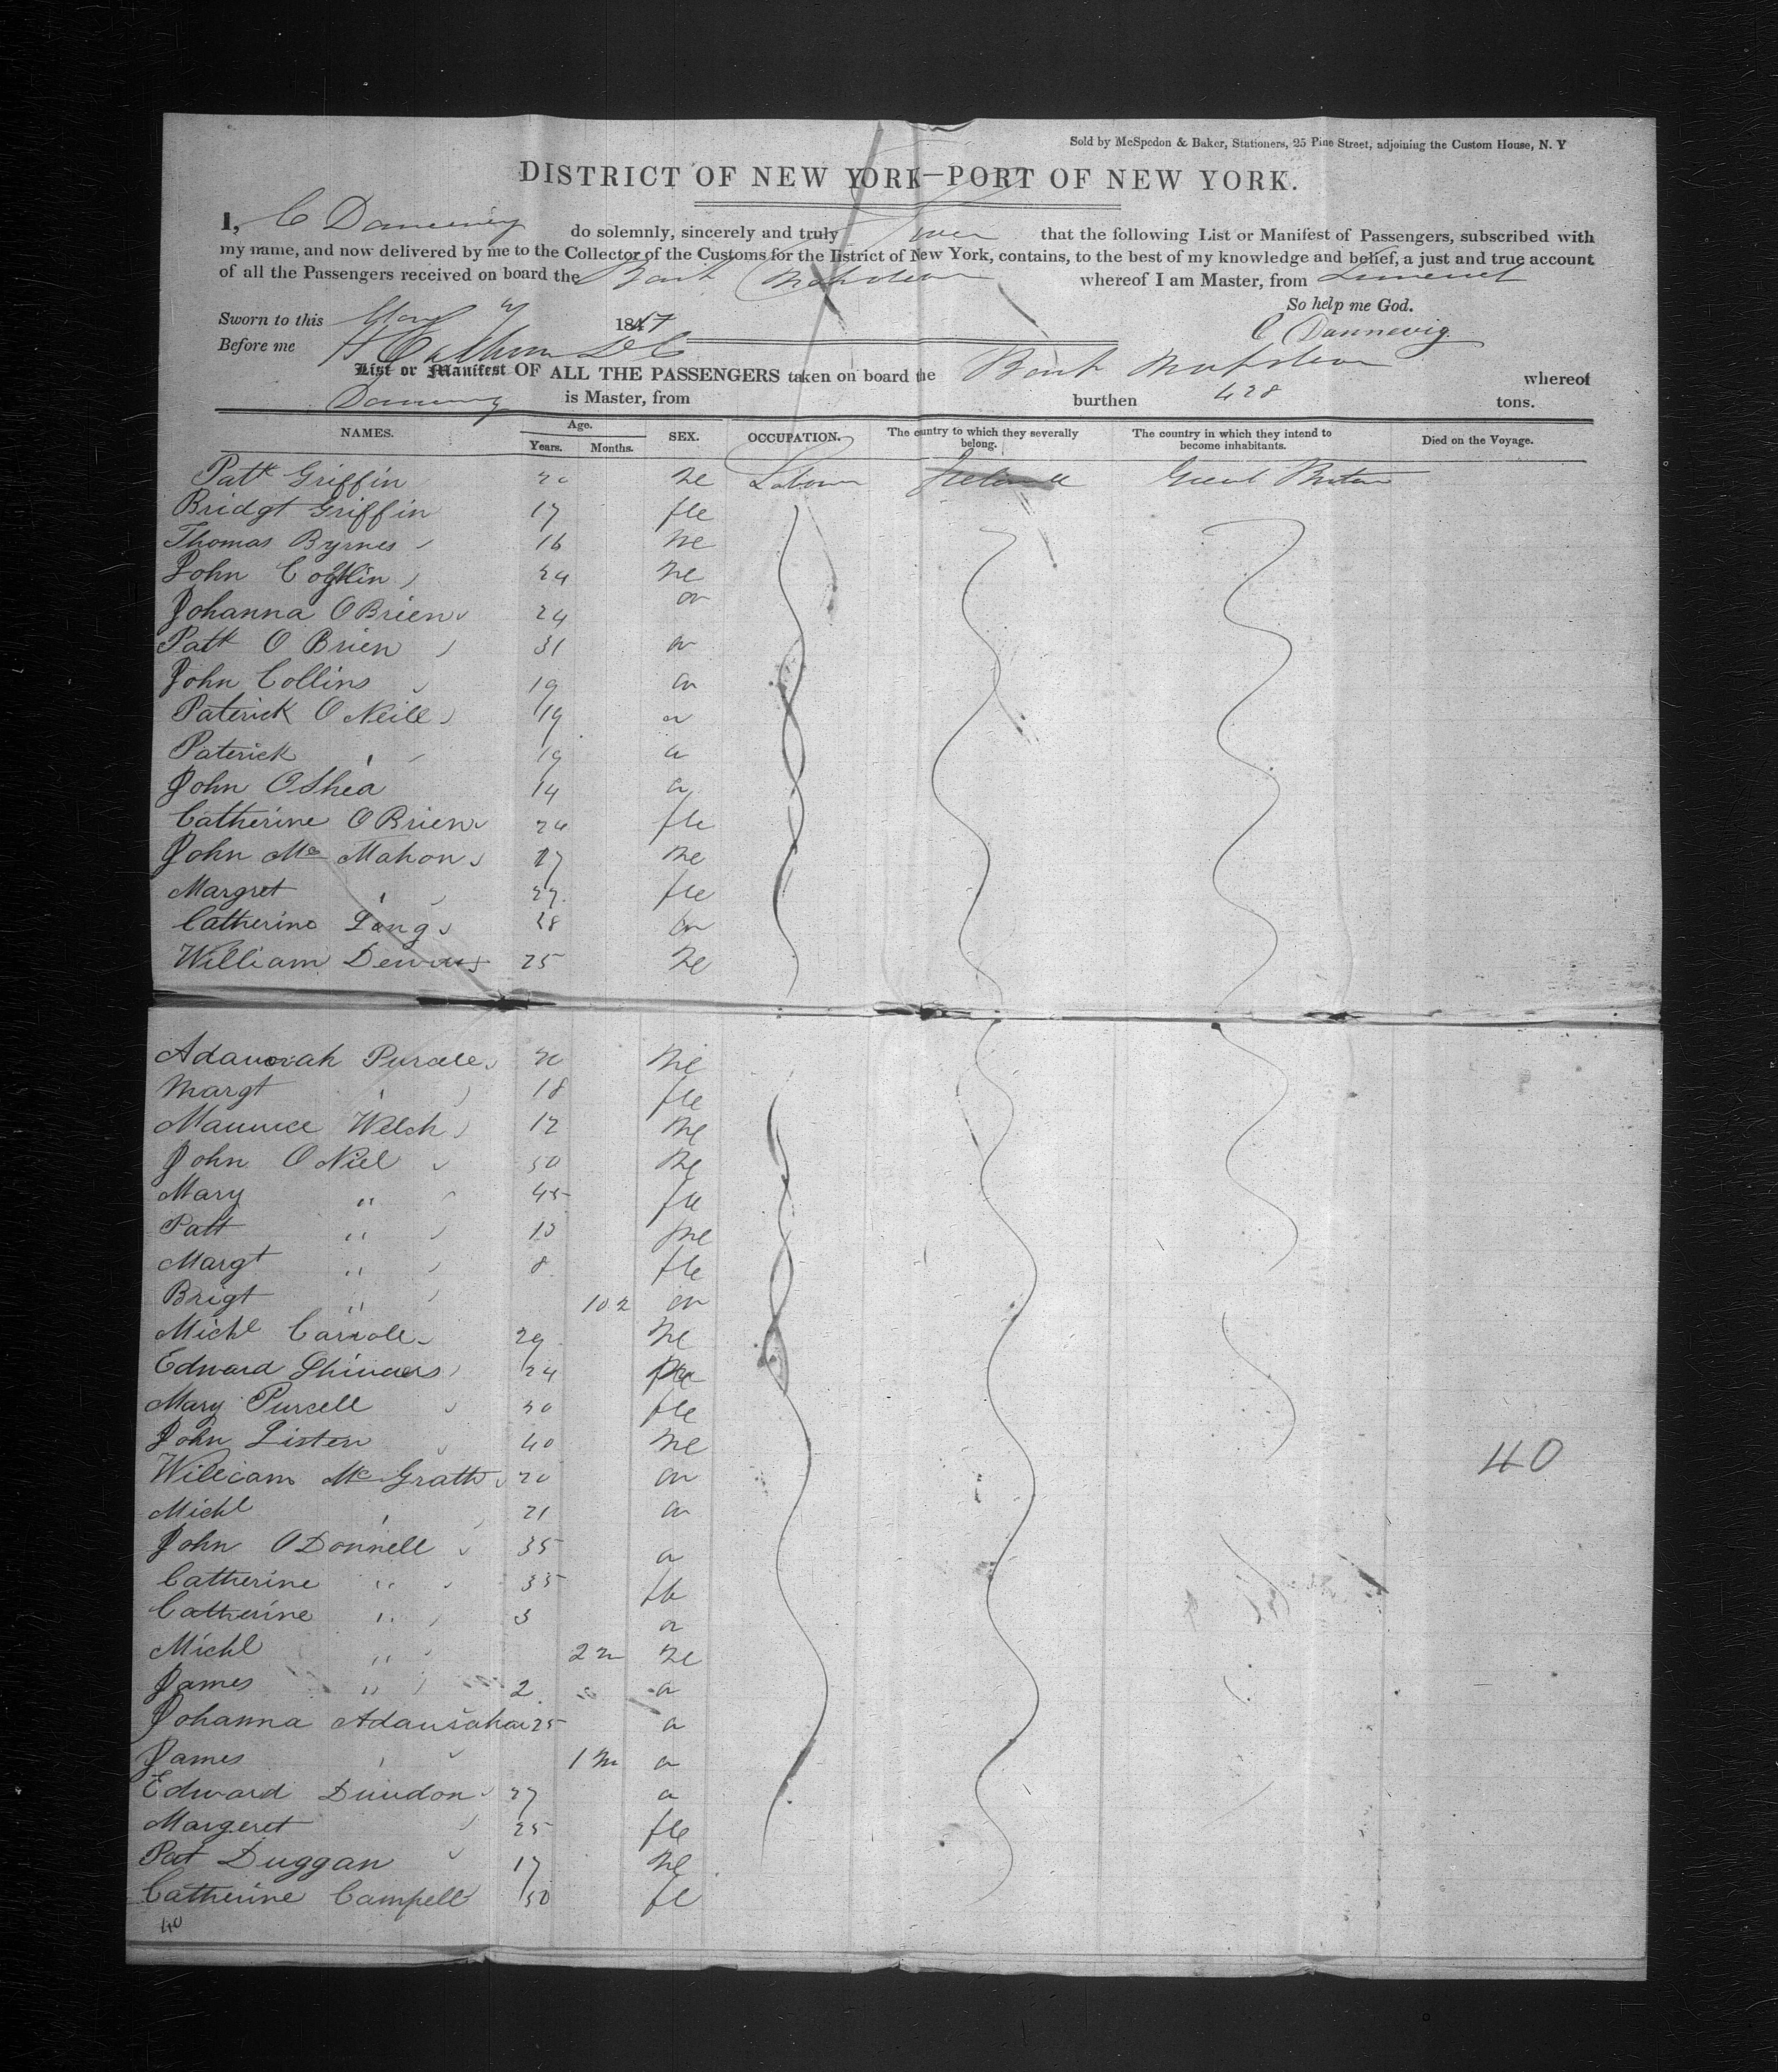 Sold by McSpedon & Baker, Stationers, 25 Pine Street, adjoining the Custom House, N. Y
DISTRICT OF NEW YORK—PORT OF NEW YORK.
I, C Dannevig do solemnly, sincerely and truly swear that the following List or Manifest of Passengers, subscribed with
my name, and now delivered by me to the Collector of the Customs for the District of New York, contains, to the best of my knowledge and belief, a just and true account
of all the Passengers received on board the Bark Napoleon whereof I am Master, from Limerick
So help me God.
Sworn to this May 1847
Before me C Dannevig
List or Manifest OF ALL THE PASSENGERS taken on board the Bark Napoleon whereof
Dannevig is Master, from burthen 428 tons.
NAMES. Age. Years. Months. SEX. OCCUPATION. The country to which they severally belong. The country in which they intend to become inhabitants. Died on the Voyage.
Patk Griffin 20 Me Labourer Ireland Great Britain
Bridgt Griffin 17 fle
Thomas Byrnes 16 Me
John Coghlin 24 Me
Johanna O Brien 24 "
Patk O Brien 31 "
John Collins 19 "
Paterick O Neill 19 "
Paterick " 19 "
John OShea 14 "
Catherine O Brien 24 fle
John Mc Mahon 17 Me
Margret " 27 fle
Catherine Lang 28 "
William 25 Me
Purcell 20 Me
Margt " 18 fle
Maurice Welch 12 Me
John O Niel 50 Me
Mary " 45 fle
Patt " 10 Me
Margt " 8 fle
Brigt " 10 "
Michl Carroll 29 Me
Edward 24
Mary Purcell 30 fle
John Listen 40 Me
William Mc Grath 20 "
Michl " 21 "
John O Donnell 35 "
Catherine " 35 fle
Catherine " 3 "
Michl " 2 m Me
James " 2 "
Johanna 25 "
James " 1 m "
Edward Dundon 27 "
Margeret 25 fle
Pat Duggan 17 Me
Catherine Campell 50 fle
40
40